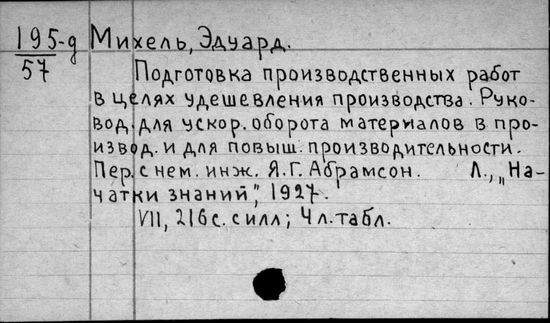 195-д
57
Михель, Эдуард.
Подготовка производственных работ
в целях удешевления производства. Руко-
вод. для ускор. оборота материалов в про-
извод. и для повыш. производительности.
Пер. с нем. инж. Я. Г. Абрамсон. Л., „На-
чатки знаний", 1927.
VII, 216 с. с илл; 4 л. табл.